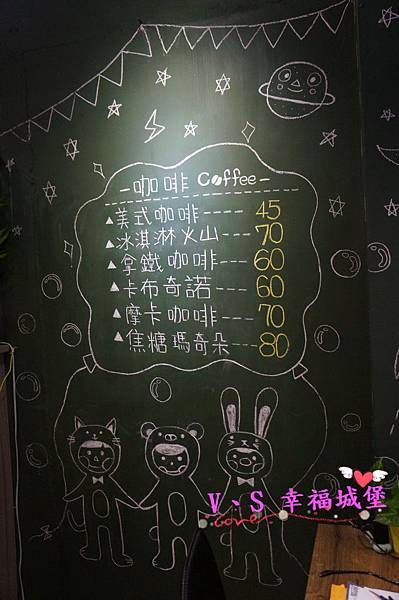 -咖啡 Coffee-
▲美式咖啡---- 45
▲冰淇淋火山-- 70
▲拿鐵咖啡--- 60
▲卡布奇諾--- 60
▲摩卡咖啡--- 70
▲焦糖瑪奇朵-- 80
V、S 幸福城堡